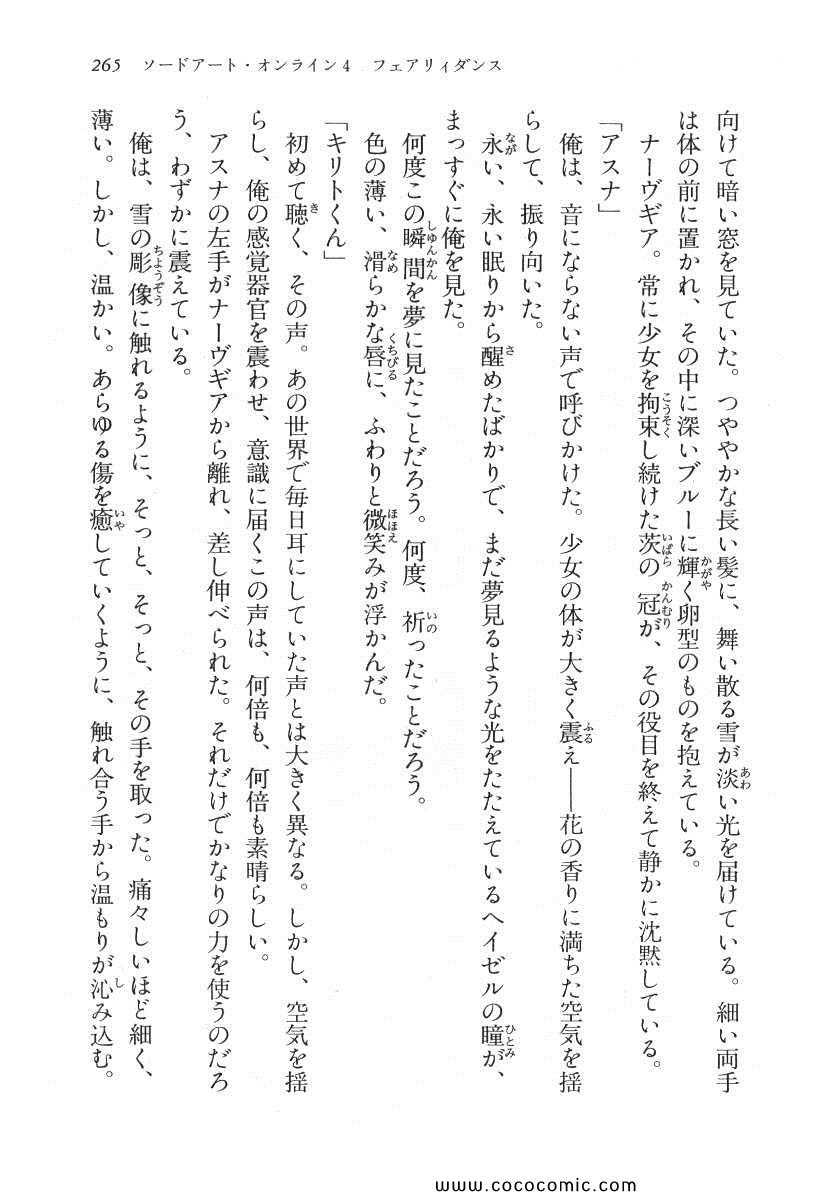 265　ソードアート・オンライン4　フェアリィダンス
向けて暗い窓を見ていた。つややかな長い髪に、舞い散る雪が淡い光を届けている。細い両手
は体の前に置かれ、その中に深いブルーに輝く卵型のものを抱えている。
　ナーヴギア。常に少女を拘束し続けた茨の冠が、その役目を終えて静かに沈黙している。
「アスナ」
　俺は、音にならない声で呼びかけた。少女の体が大きく震え――花の香りに満ちた空気を揺
らして、振り向いた。
　永い、永い眠りから醒めたばかりで、まだ夢見るような光をたたえているヘイゼルの瞳が、
まっすぐに俺を見た。
　何度この瞬間を夢に見たことだろう。何度、祈ったことだろう。
　色の薄い、滑らかな唇に、ふわりと微笑みが浮かんだ。
「キリトくん」
　初めて聴く、その声。あの世界で毎日耳にしていた声とは大きく異なる。しかし、空気を揺
らし、俺の感覚器官を震わせ、意識に届くこの声は、何倍も、何倍も素晴らしい。
　アスナの左手がナーヴギアから離れ、差し伸べられた。それだけでかなりの力を使うのだろ
う、わずかに震えている。
　俺は、雪の彫像に触れるように、そっと、そっと、その手を取った。痛々しいほど細く、
薄い。しかし、温かい。あらゆる傷を癒していくように、触れ合う手から温もりが沁み込む。
www.cococomic.com